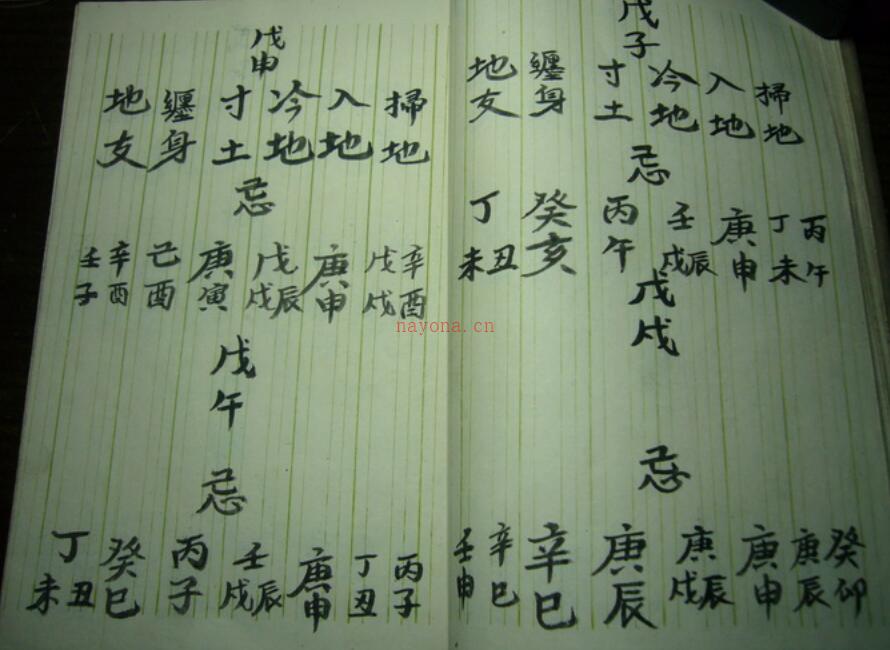 戊子
掃地
入地
冷地
寸土
纏身
地支
忌
丙午
丁未
庚申
壬辰戌
丙午
癸亥
丁丑未
戊戌
忌
癸卯
庚辰
庚申
庚辰戌
庚辰
辛巳
辛巳
壬申
戊申
掃地
入地
冷地
寸土
纏身
地支
忌
辛酉
戊戌
庚申
戊辰戌
庚寅
己酉
辛酉
壬子
戊午
忌
丙子
丁丑
庚申
壬辰戌
丙子
癸巳
丁丑未
nayona.cn